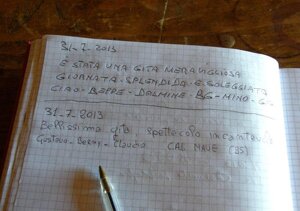 31-7-2013
E' STATA UNA GITA MERAVIGLIOSA
GIORNATA - SPLENDIDA - E SOLEGGIATA
CIAO - BEPPE - DALMINE - BG - MINO -
31.7.2013
Bellissima gita, spettacolo incantevole
Gustavo - Berny - Claudio CAI NAVE (BS)